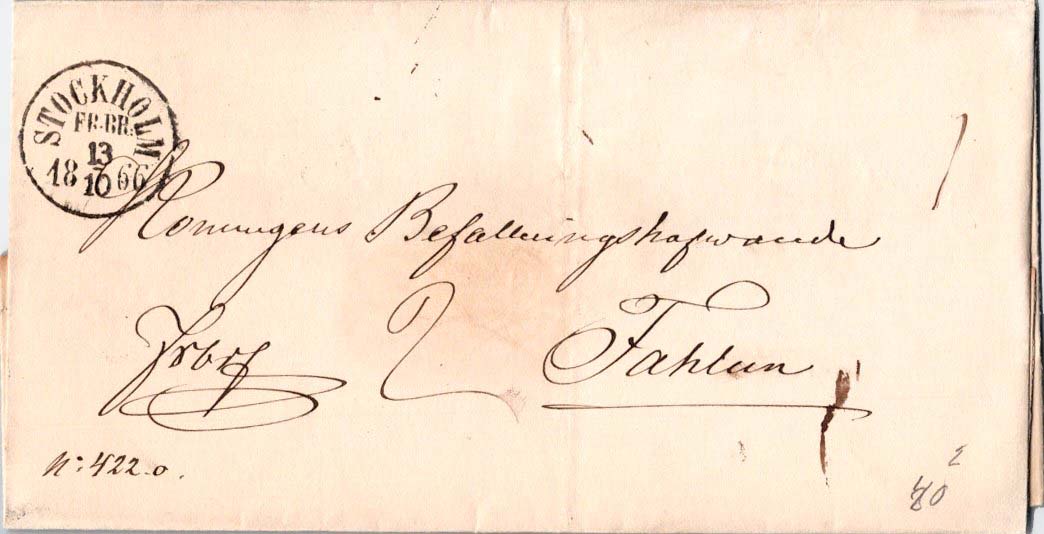 STOCKHOLM
FR.BR.
13
18 66
10
Konungens Befallningshafwande
Frbrf 2 Fahlun
N: 422.o.
2